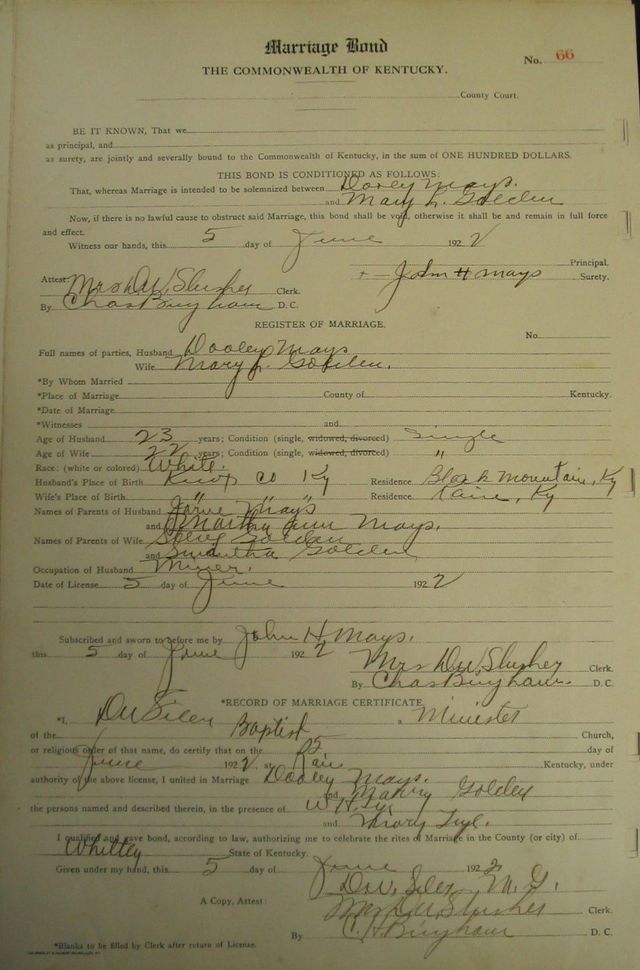 Marriage Bond
No. 66
THE COMMONWEALTH OF KENTUCKY.
County Court.
BE IT KNOWN, That we
as principal, and
as surety, are jointly and severally bound to the Commonwealth of Kentucky, in the sum of ONE HUNDRED DOLLARS.
THIS BOND IS CONDITIONED AS FOLLOWS:
That, whereas Marriage is intended to be solemnized between Dooley Mays.
and Mary L. Golden
Now, if there is no lawful cause to obstruct said Marriage, this bond shall be void, otherwise it shall be and remain in full force
and effect.
Witness our hands, this 5 day of June 1922
Principal.
John H Mays Surety.
Attest: Mrs D W Slusher Clerk.
By Chas Bingham D. C.
REGISTER OF MARRIAGE.
No.
Full names of parties, Husband Dooley Mays
Wife Mary L. Golden.
*By Whom Married
*Place of Marriage County of Kentucky.
*Date of Marriage
*Witnesses and
Age of Husband 23 years; Condition (single, widowed, divorced) Single
Age of Wife 22 years; Condition (single, widowed, divorced) "
Race: (white or colored) White.
Husband's Place of Birth Knox Co Ky Residence Black Mountain, Ky
Wife's Place of Birth " " " Residence , Ky
Names of Parents of Husband Mays
and Martha Ann Mays.
Names of Parents of Wife Golden
and Golden
Occupation of Husband Miner.
Date of License 5 day of June 1922
Subscribed and sworn to before me by John H Mays.
this 5 day of June 1922
Mrs D W Slusher Clerk.
By Chas Bingham D. C.
*RECORD OF MARRIAGE CERTIFICATE
*I, D W Siler a Minister
of the Baptist Church,
or religious order of that name, do certify that on the day of
June 1922 at Kentucky, under
authority of the above license, I united in Marriage Dooley Mays.
and Golden
the persons named and described therein, in the presence of W H
and
I qualified and gave bond, according to law, authorizing me to celebrate the rites of Marriage in the County (or city) of
Whitley State of Kentucky.
Given under my hand, this 5 day of June 1922
D. W. Siler M. G.
A Copy, Attest: Mrs D W Slusher Clerk.
By C H Bingham D. C.
*Blanks to be filled by Clerk after return of License.